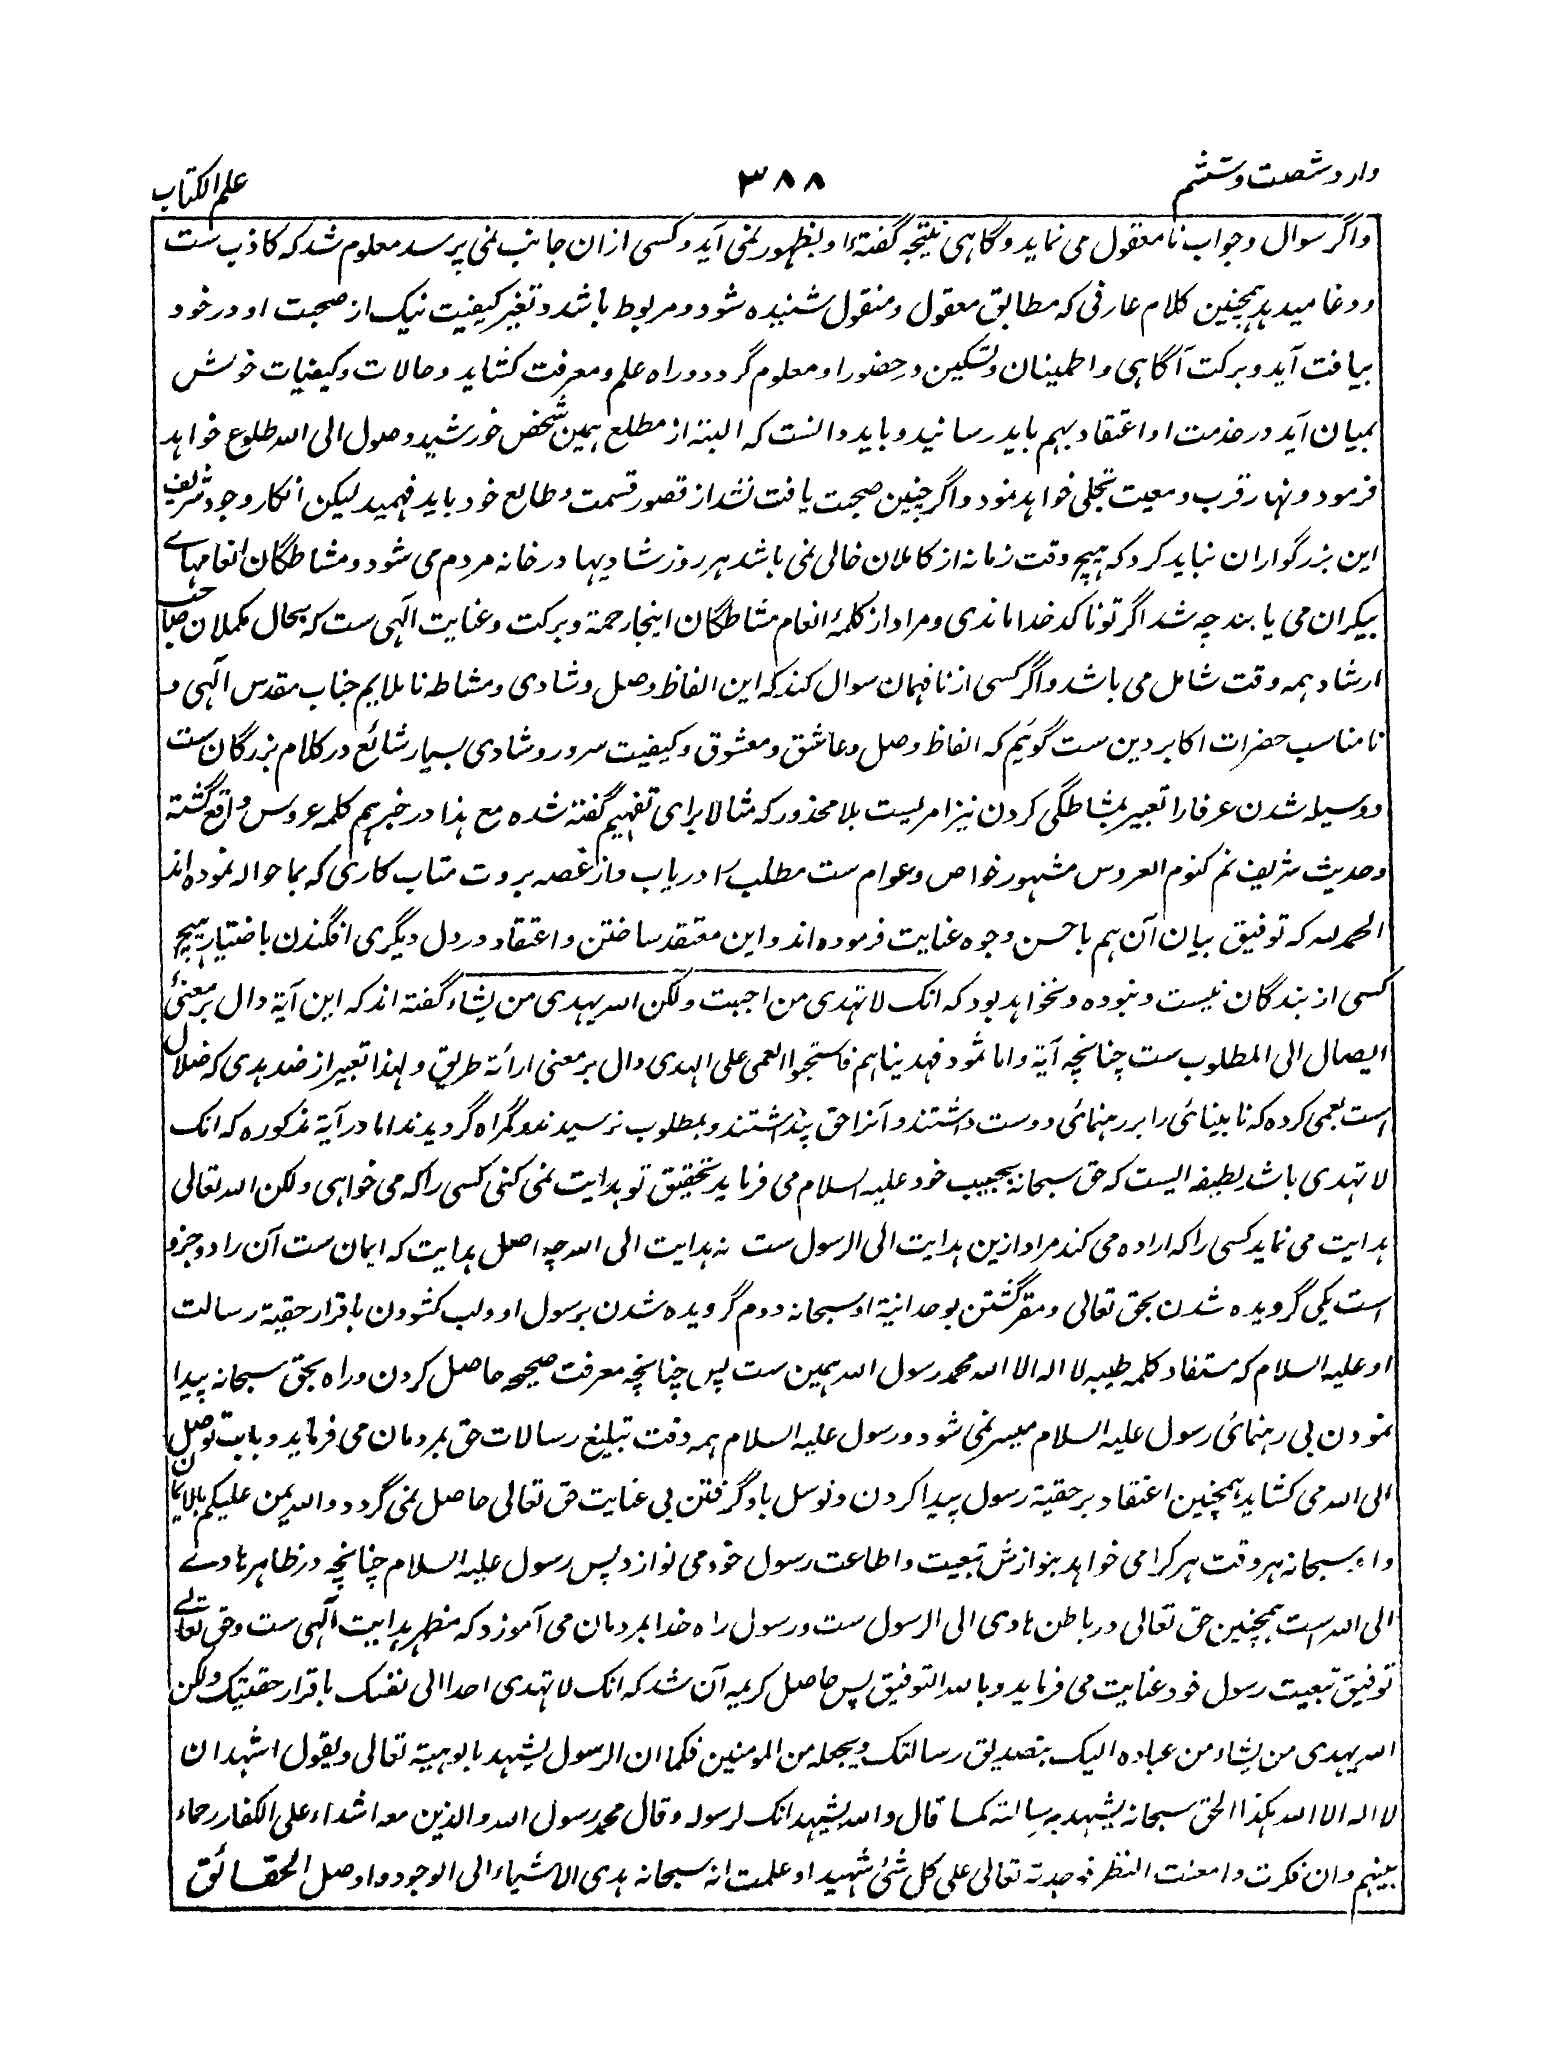 وارد شصت و ششم
۳۸۸
علم الکتاب
واگر سوال و جواب نامعقول می نماید و گاہی نتیجہ گفتۂ او بظہور نمی آید و کسی از ان جانب نمی پرسد معلوم شد کہ کاذب ست
و دغا میدہد ہمچنین کلام عارفی کہ مطابق معقول و منقول شنیدہ شود و مربوط باشد و تغیر کیفیت نیک از صحبت او در خود
بیافت آید و برکت آگاہی و اطمینان و تسکین و حضور او معلوم گردد و راہ علم و معرفت کشاید و حالات و کیفیات خوش
بمیان آید در خدمت او اعتقاد بہم باید رسانید و باید دانست کہ البتہ از مطلع ہمین شخص خورشید وصول الی اللہ طلوع خواہد
فرمود و نہار قرب و معیت تجلی خواہد نمود و اگر چنین صحبت یافت نشد از قصور قسمت و طالع خود باید فہمید لیکن انکار وجود شریف
این بزرگواران نباید کرد کہ ہیچ وقت زمانہ از کاملان خالی نمی باشد ہر روز شادیہا در خانہ مردم می شود و مشاطگان انعامہاے
بیکران می یابند چہ شد اگر تو ناکدخدا ماندی و مراد از کلمۂ انعام مشاطگان اینجا رحمة و برکت و عنایت الٓہی ست کہ بحال مکملان صاحب
ارشاد ہمہ وقت شامل می باشد و اگر کسی از نافہمان سوال کند کہ این الفاظ وصل و شادی و مشاطہ نا ملایم جناب مقدس الٓہی و
نامناسب حضرات اکابر دین ست گوئیم کہ الفاظ وصل و عاشق و معشوق و کیفیت سرور و شادی بسیار شائع در کلام بزرگان ست
و وسیلہ شدن عرفا را تعبیر بمشاطگی کردن نیز امریست بلا محذور کہ مثالا برای تفہیم گفتہ شدہ مع ہذا در خبر ہم کلمہ عروس واقع گشتہ
و حدیث شریف نم کنوم العروس مشہور خواص و عوام ست مطلب را دریاب و از غصہ بروت متاب کاری کہ بما حوالہ نمودہ اند
الحمد للہ کہ توفیق بیان آن ہم باحسن وجوہ عنایت فرمودہ اند و این معتقد ساختن و اعتقاد در دل دیگری افگندن باختیار ہیچ
کسی از بندگان نیست و نبودہ و نخواہد بود کہ انک لا تہدی من احببت ولکن اللہ یہدی من یشاء گفتہ اند کہ این آیة دال بر معنئ
ایصال الی المطلوب ست چنانچہ آیة و اما ثمود فہدیناہم فاستحبوا العمی علی الہدی دال بر معنی ارائة طریق و لہذا تعبیر از ضد ہدی کہ ضلال
است بعمی کردہ کہ نابینائی را بر رہنمائی دوست داشتند و آنرا حق پنداشتند و بمطلوب نرسیدند و گمراہ گردیدند اما در آیة مذکورہ کہ انک
لا تہدی باشد لطیفہ ایست کہ حق سبحانہ بحبیب خود علیہ السلام می فرماید تحقیق تو ہدایت نمی کنی کسی را کہ می خواہی ولکن اللہ تعالی
ہدایت می نماید کسی را کہ ارادہ می کند مراد ازین ہدایت الی الرسول ست نہ ہدایت الی اللہ چہ اصل ہدایت کہ ایمان ست آن را دو جزو
است یکی گرویدہ شدن بحق تعالی و مقر گشتن بوحدانیة او سبحانہ دوم گرویدہ شدن برسول او و لب کشودن باقرار حقیة رسالت
او علیہ السلام کہ مستفاد کلمہ طیبہ لا الہ الا اللہ محمد رسول اللہ ہمین ست پس چنانچہ معرفت صحیحہ حاصل کردن و راہ بحق سبحانہ پیدا
نمودن بی رہنمائ رسول علیہ السلام میسر نمی شود و رسول علیہ السلام ہمہ وقت تبلیغ رسالات حق بمردمان می فرماید و باب توصل
الی اللہ می کشاید ہمچنین اعتقاد بر حقیة رسول پیدا کردن و توسل باو گرفتن بی عنایت حق تعالی حاصل نمی گردد واللہ یمن علیکم بالایمان
و او سبحانہ ہر وقت ہر کرا می خواہد بنوازش تبعیت و اطاعت رسول خود می نوازد پس رسول علیہ السلام چنانچہ در ظاہر ہادے
الی اللہ است ہمچنین حق تعالی در باطن ہادی الی الرسول ست و رسول راہ خدا بمردمان می آموزد کہ مظہر ہدایت الٓہی ست و حق تعالے
توفیق تبعیت رسول خود عنایت می فرماید و باللہ التوفیق پس حاصل کریمہ آن شد کہ انک لا تہدی احدا الی نفسک باقرار حقیتک ولکن
اللہ یہدی من یشاء من عبادہ الیک بتصدیق رسالتک و یجعلہ من المومنین فکما ان الرسول یشہد بالوہیة تعالی و یقول اشہد ان
لا الہ الا اللہ ہکذا الحق سبحانہ یشہد برسالتہ کما قال واللہ یشہد انک لرسولہ و قال محمد رسول اللہ والذین معہ اشداء علی الکفار رحماء
بینہم و ان فکرت و امعنت النظر فوجدتہ تعالی علی کل شئ شہید او علمت انہ سبحانہ ہدی الاشیاء الی الوجود و اوصل الحقائق